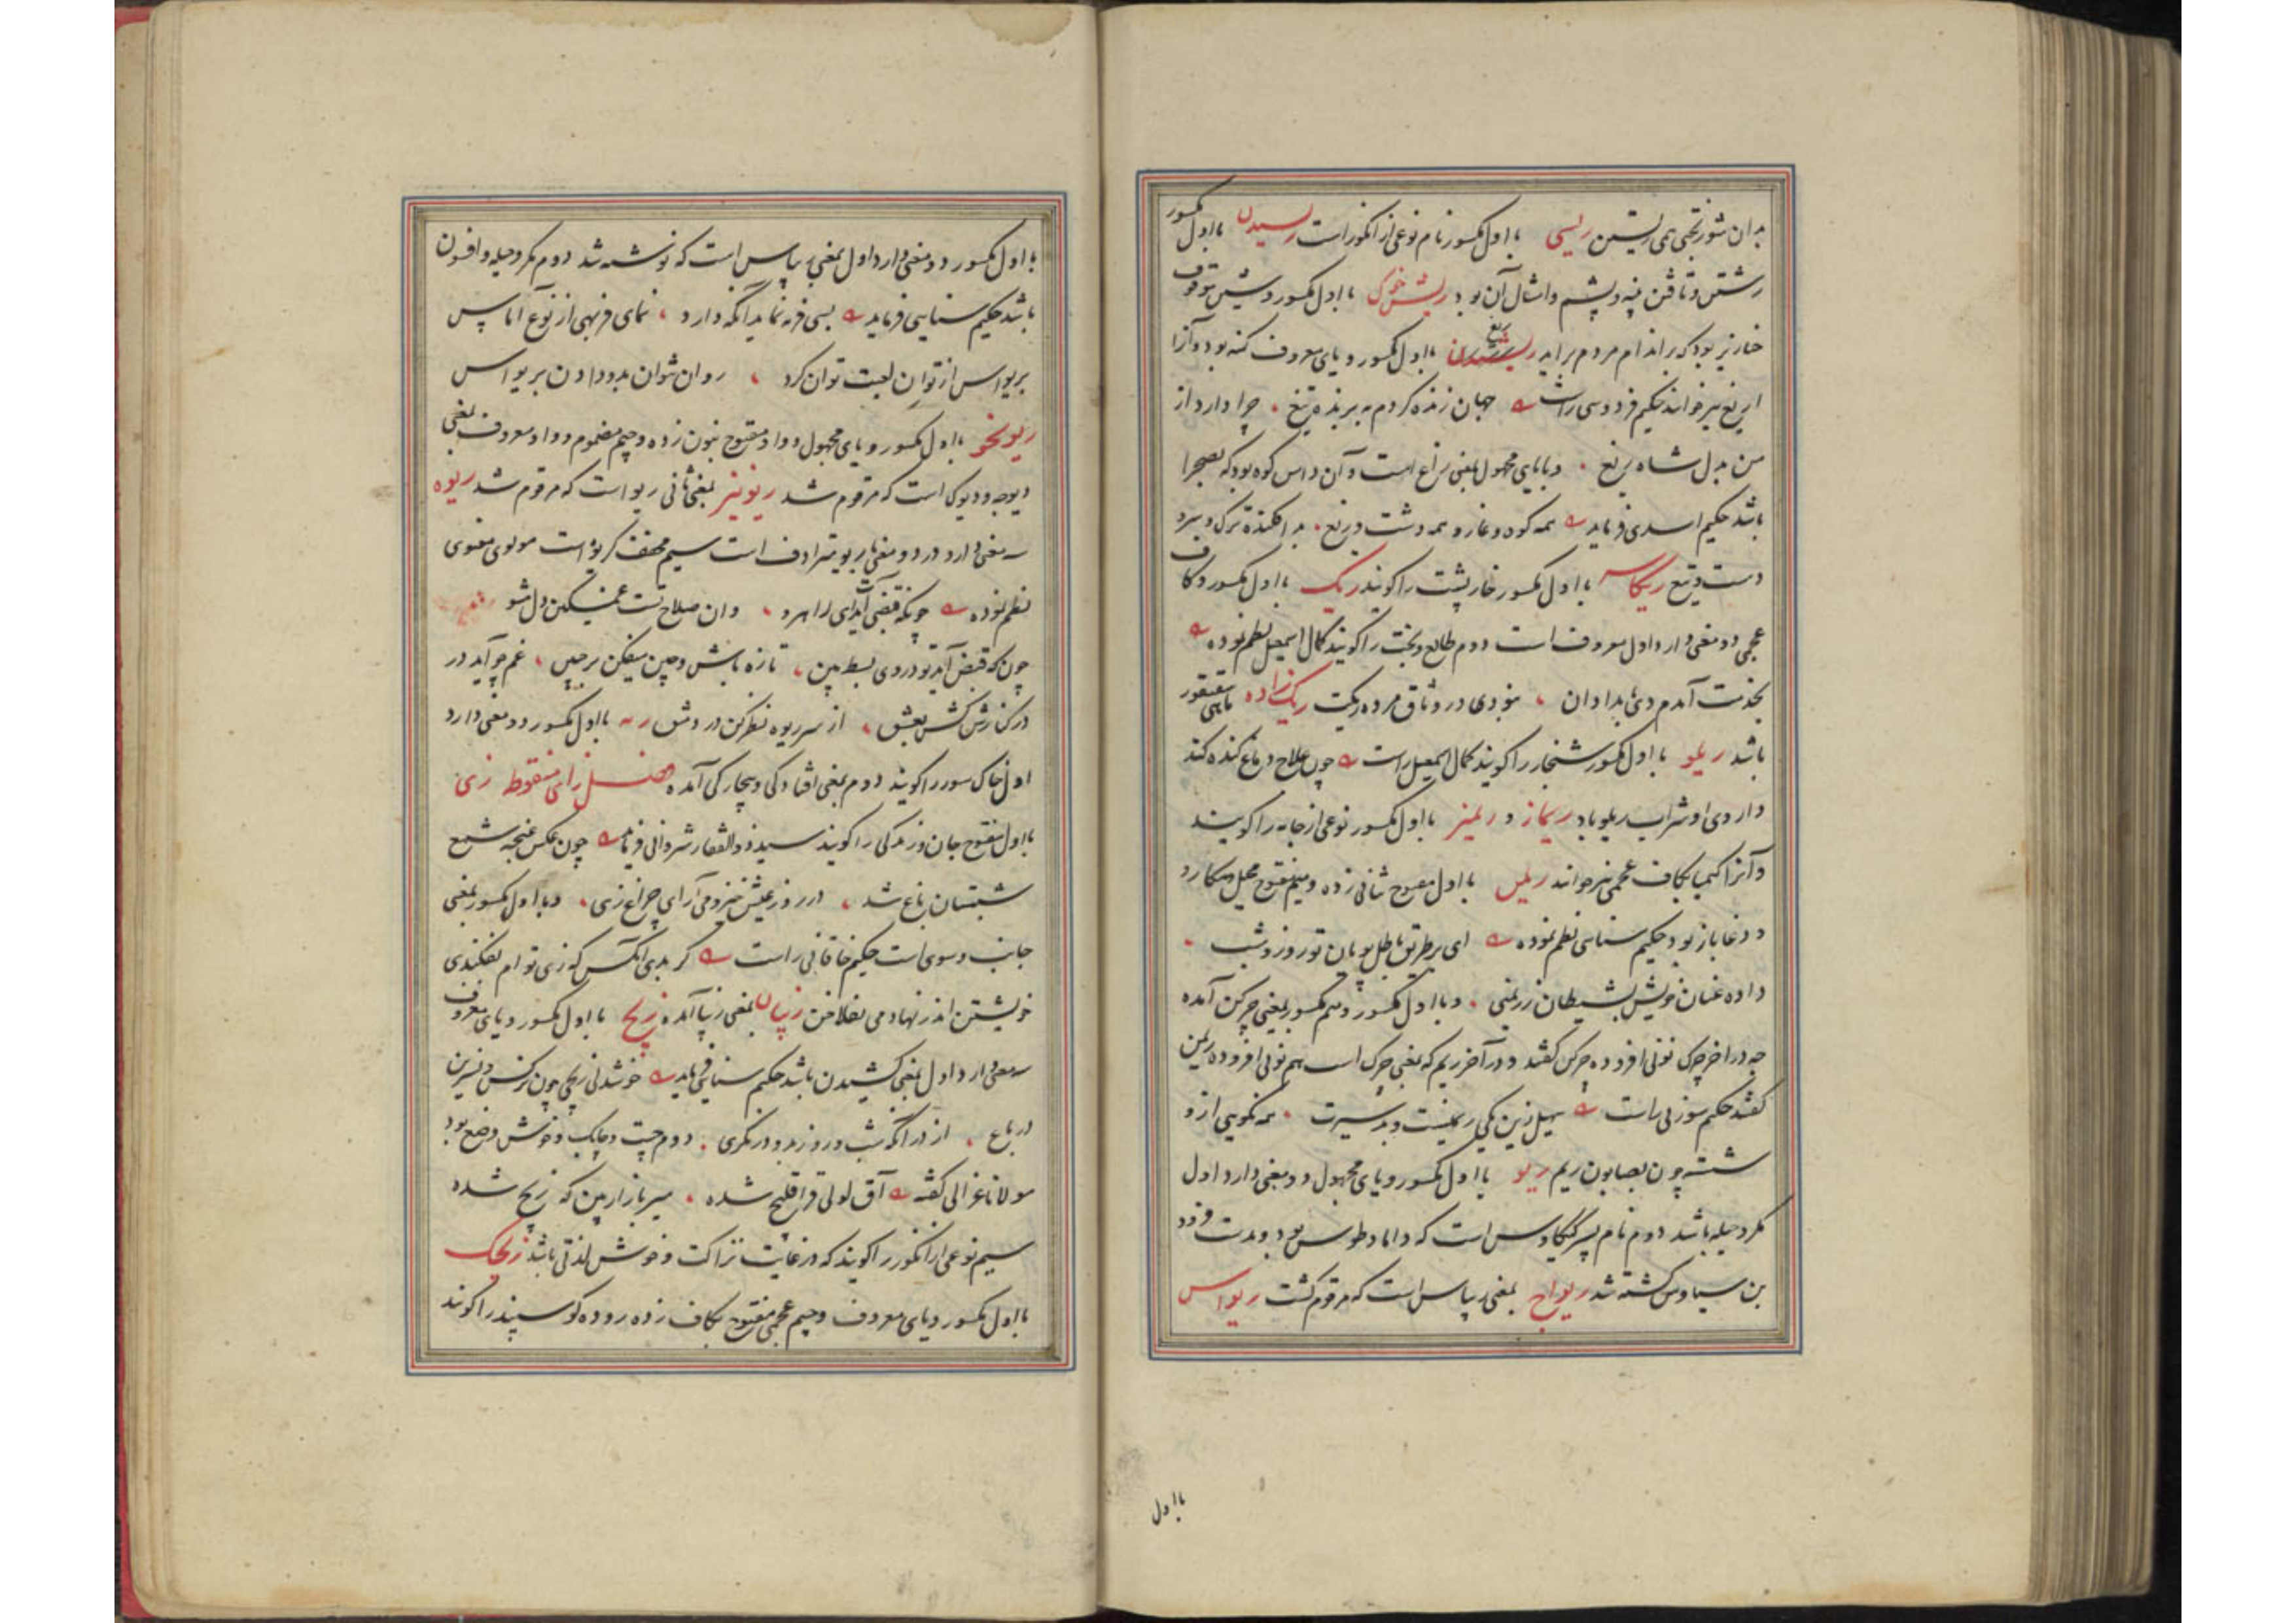 بدان شوربختی همی ریستن ریسی با اول مکسور نام نوعی از انگور است ریسیدن با اول مکسور
رشتن و تافتن پنبه و پشم و امثال آن بود ریش خوک با اول مکسور و شین موقوف
خنازیر بود که بر اندام مردم برآید ریغ با اول مکسور و یای معروف کینه بود و آنرا
اریغ نیز خوانند حکیم فردوسی راست جهان زنده کردم به برنده تیغ چرا دارد از
من بدل شاه ریغ و با یای مجهول بمعنی راغ است و آن دامن کوه بود که بصحرا
باشد حکیم اسدی فرماید همه کوه و غار و همه دشت و ریغ پراکنده ترک و سر و
دست و تیغ ریکاسه با اول مکسور خارپشت را گویند ریک با اول مکسور و کاف
عجمی دو معنی دارد اول معروف است دوم طالع و بخت را گویند کمال اسمعیل نظم نموده
بخدمت آمدم دی بامدادان نبودی در وثاق مرده ریکت ریک زاده ماهی سقنقور
باشد ریلو با اول مکسور شنجار را گویند کمال اسمعیل راست چون علاج دماغ گنده کند
داروی او شراب ریلو باد ریماز و ریمیز با اول مکسور نوعی از جامه را گویند
و آنرا کیمیا بکاف عجمی نیز خوانند ریمن با اول مفتوح ثانی زده و میم مفتوح محیل و مکار و
و دغاباز بود حکیم سنایی نظم نموده ای بر طریق باطل پویان تو روز و شب
داده عنان خویش بشیطان ریمنی و با اول مکسور و میم مکسور بمعنی چرکن آمده
چه در آخر چرک نونی افزوده چرکن گفتند و در آخر ریم که بمعنی چرک است هم نونی افزوده ریمن
گفتند حکیم سوزنی راست سهیل زین یکی ریمنست و بد سیرت همه نکویی از و
شسته چون بصابون ریم ریو با اول مکسور و یای مجهول دو معنی دارد اول
مکر و حیله باشد دوم نام پسر کیکاوس است که داماد طوس بود و بدست فرود
بن سیاوش کشته شد ریواج بمعنی ریباس است که مرقوم گشت ریواس
با اول
با اول مکسور دو معنی دارد اول بمعنی ریباس است که نوشته شد دوم مکر و حیله و افسون
باشد حکیم سنایی فرماید بسی فربه نماید آنکه دارد نمای فربهی از نوع آماس
بریواس از توان لعبت توان کرد روان نتوان بدو دادن بریواس
ریونجو با اول مکسور و یای مجهول و واو مفتوح بنون زده و جیم مضموم و واو معروف بمعنی
دیوجه و دیوک است که مرقوم شد ریونیز بمعنی ثانی ریو است که مرقوم شد ریوه
سه معنی دارد در دو معنی با ریو مترادف است سیم مخفف گریوه است مولوی معنوی
نظم نموده چونکه قبضی آیدت ای راهرو آن صلاح تست غمگین دل مشو
چون که قبض آید تو در وی بسط بین تازه باش و چین میفکن بر جبین غم چو آید در
در کنارش کش بعشق از سر ریوه نظر کن در دمشق ریه با اول مکسور دو معنی دارد
اول خاک شور را گویند دوم بمعنی افتادگی و بیچارگی آمده فصل زای منقوط زی
با اول مفتوح جان و زندگی را گویند سید ذوالفقار شروانی فرماید چون عکس غنچه شمع
شبستان باغ شد در روز عیش خیز و می آرای چراغ زی و با اول مکسور بمعنی
جانب و سوی است حکیم خاقانی راست گر بدی آنکس که زی تو ام بفکندی
خویشتن اندر نهادمی بفلاخن زیبان بمعنی زیبا آمده زیج با اول مکسور و یای معروف
سه معنی دارد اول بمعنی کشیدن باشد حکیم سنایی فرماید خوشدلی زیجی چون نرگس و نسرین
در باغ از در آنکه شب و روز بدو درنگری دوم چست و چابک و خوش وضع بود
مولانا غزالی گفته آق لولی قراقلیج شده سر بازار بین که زیج شده
سیم نوعی از انگور را گویند که در غایت نزاکت و خوش لذتی باشد زیجک
با اول مکسور و یای معروف و جیم عجمی مفتوح بکاف زده روده گوسپند را گویند